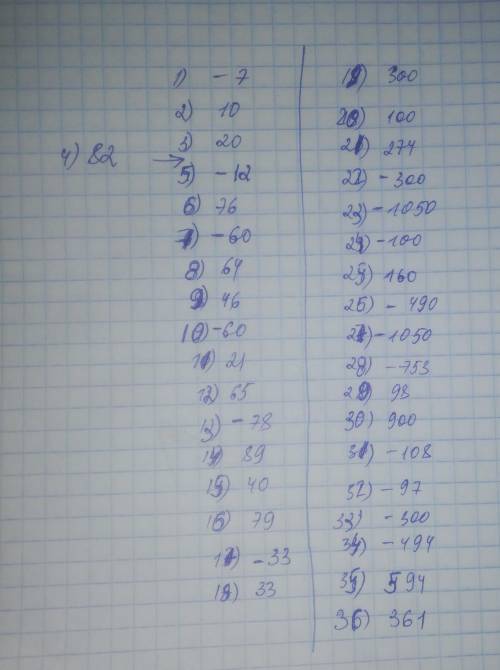 1) -7
2) 10
3) 20
4) 82 →
5) -12
6) 76
7) -60
8) 64
9) 46
10) -60
11) 21
12) 65
13) -78
14) 89
15) 40
16) 79
17) -33
18) 33
19) 300
20) 100
21) 274
22) -300
23) -1050
24) -100
25) 160
26) -490
27) -1050
28) -753
29) 93
30) 900
31) -108
32) -97
33) -300
34) -494
35) 594
36) 361